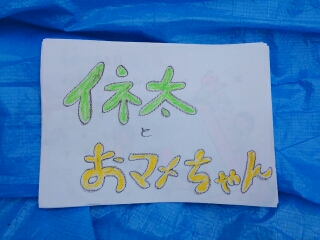 イネ太
と
おマメちゃん